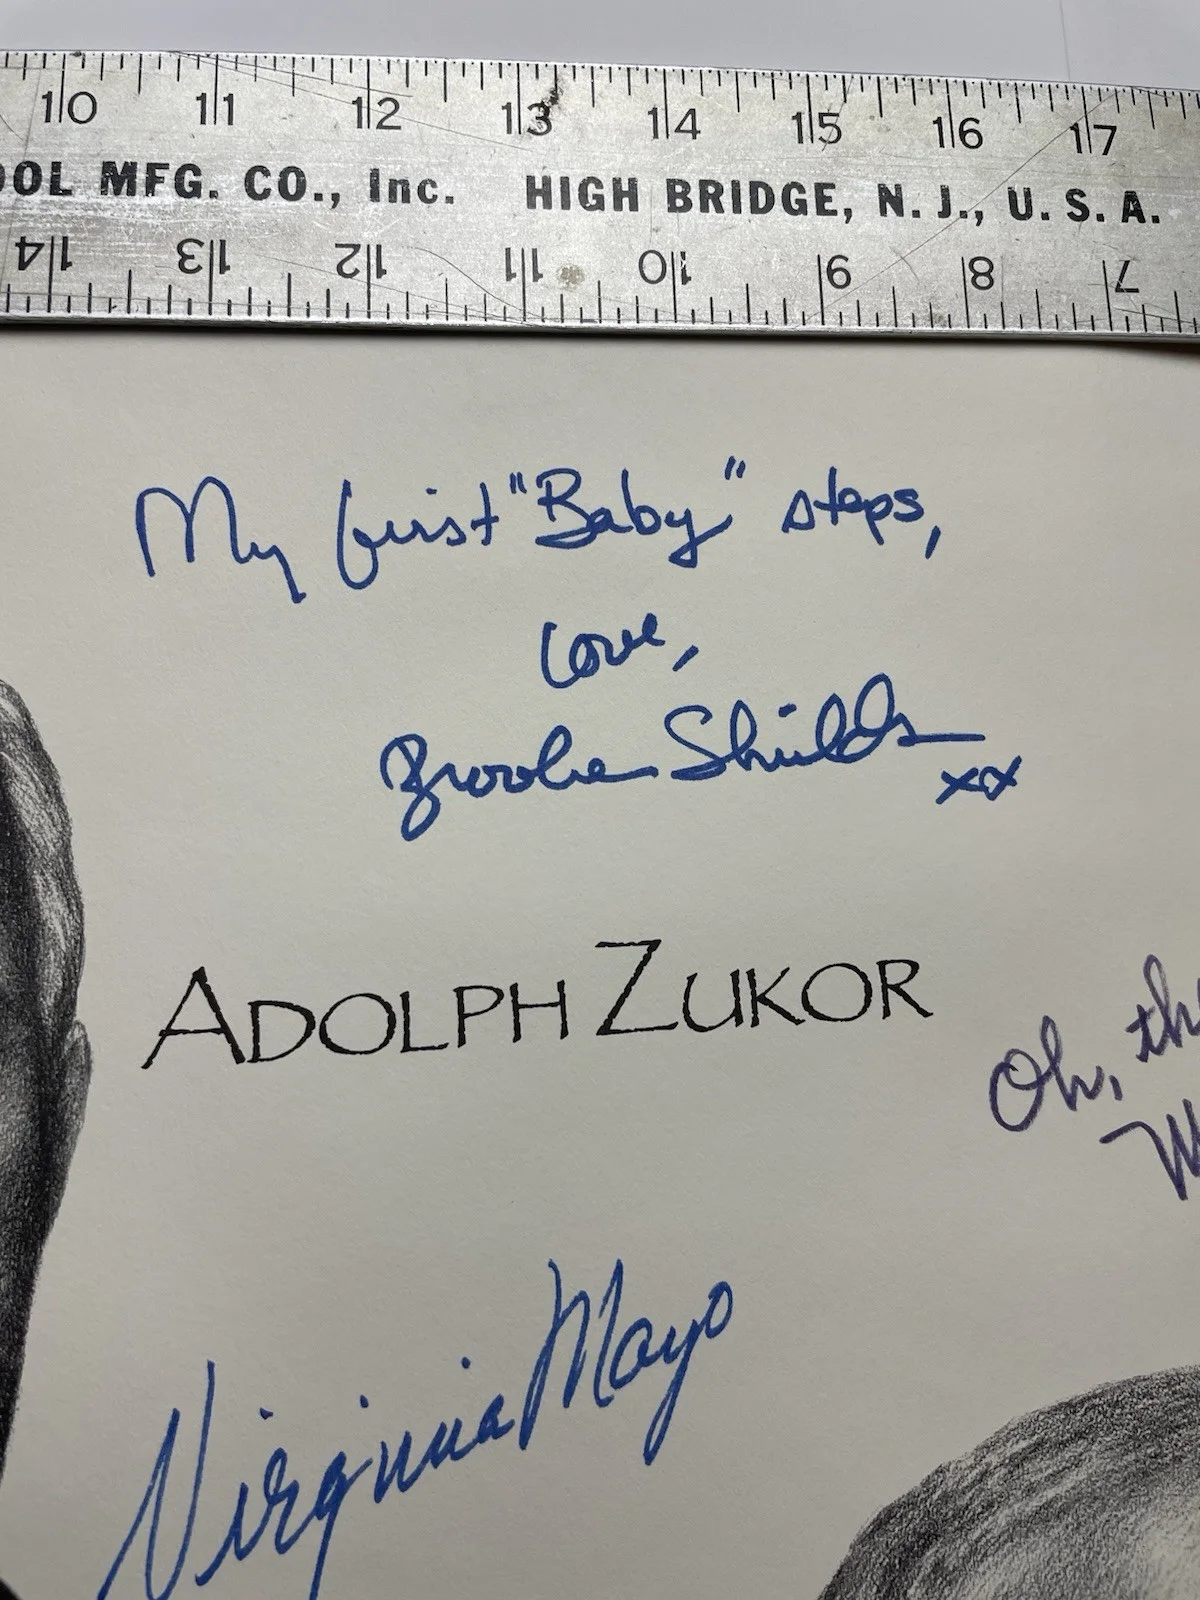 10 11 12 13 14 15 16 17
OOL MFG. CO., Inc. HIGH BRIDGE, N. J., U. S. A.
14 13 12 11 10 9 8 7
My first "Baby" steps,
Love,
Brooke Shields
xx
ADOLPH ZUKOR
Oh,
Virginia Mayo